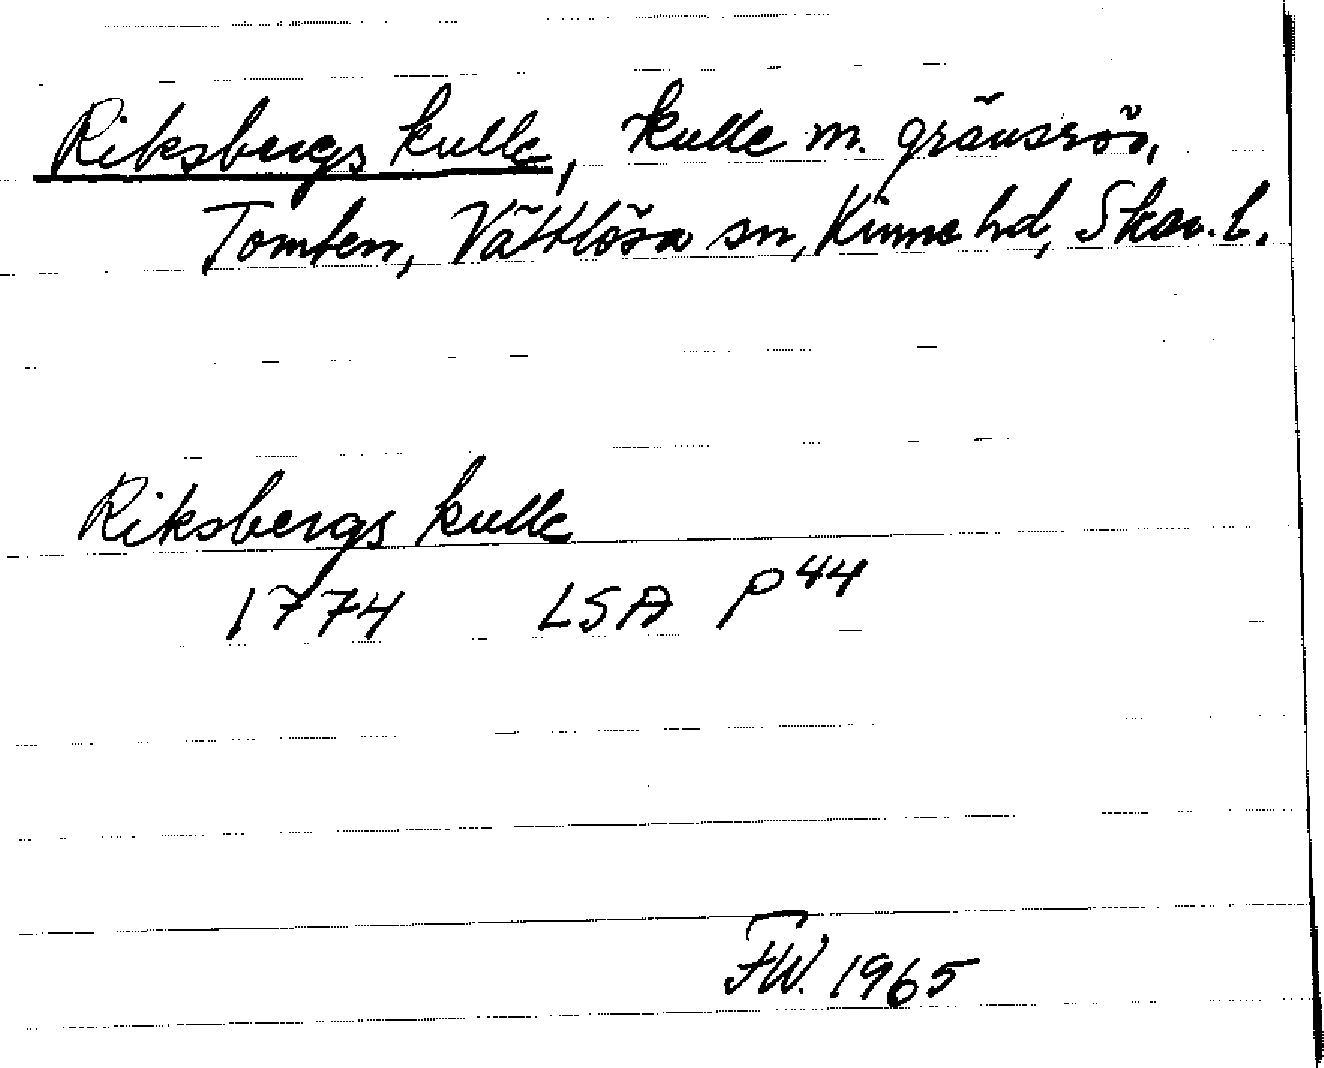 Riksbergs kulle, kulle m. gränsrös,
Tomten, Vättlösa sn, Kinne hd, Skar. l.
Riksbergs kulle
1774 LSA P 44
F.W. 1965